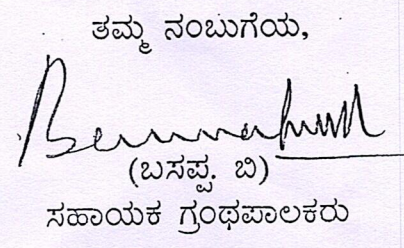 ತಮ್ಮ ನಂಬುಗೆಯ,
(ಬಸಪ್ಪ. ಬಿ)
ಸಹಾಯಕ ಗ್ರಂಥಪಾಲಕರು